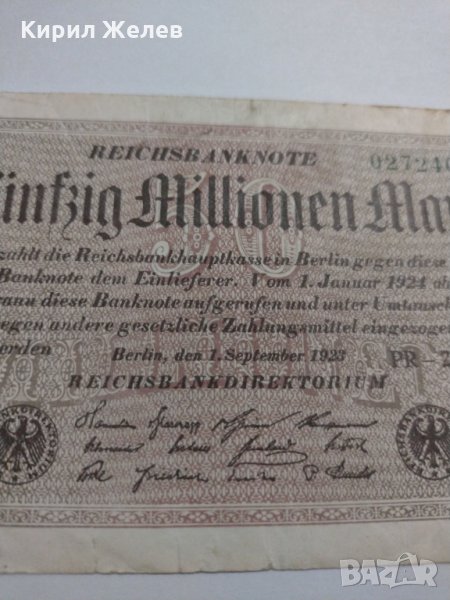 Кирил Желев
REICHSBANKNOTE 027240
ünfzig Millionen Mar
50
zahlt die Reichsbankhauptkasse in Berlin gegen diese
Banknote dem Einlieferer. Vom 1. Januar 1924 ab
ann diese Banknote aufgerufen und unter Umtausch
egen andere gesetzliche Zahlungsmittel eingezogen
erden
Berlin, den 1. September 1923 PR-7
REICHSBANKDIREKTORIUM
BAZAR